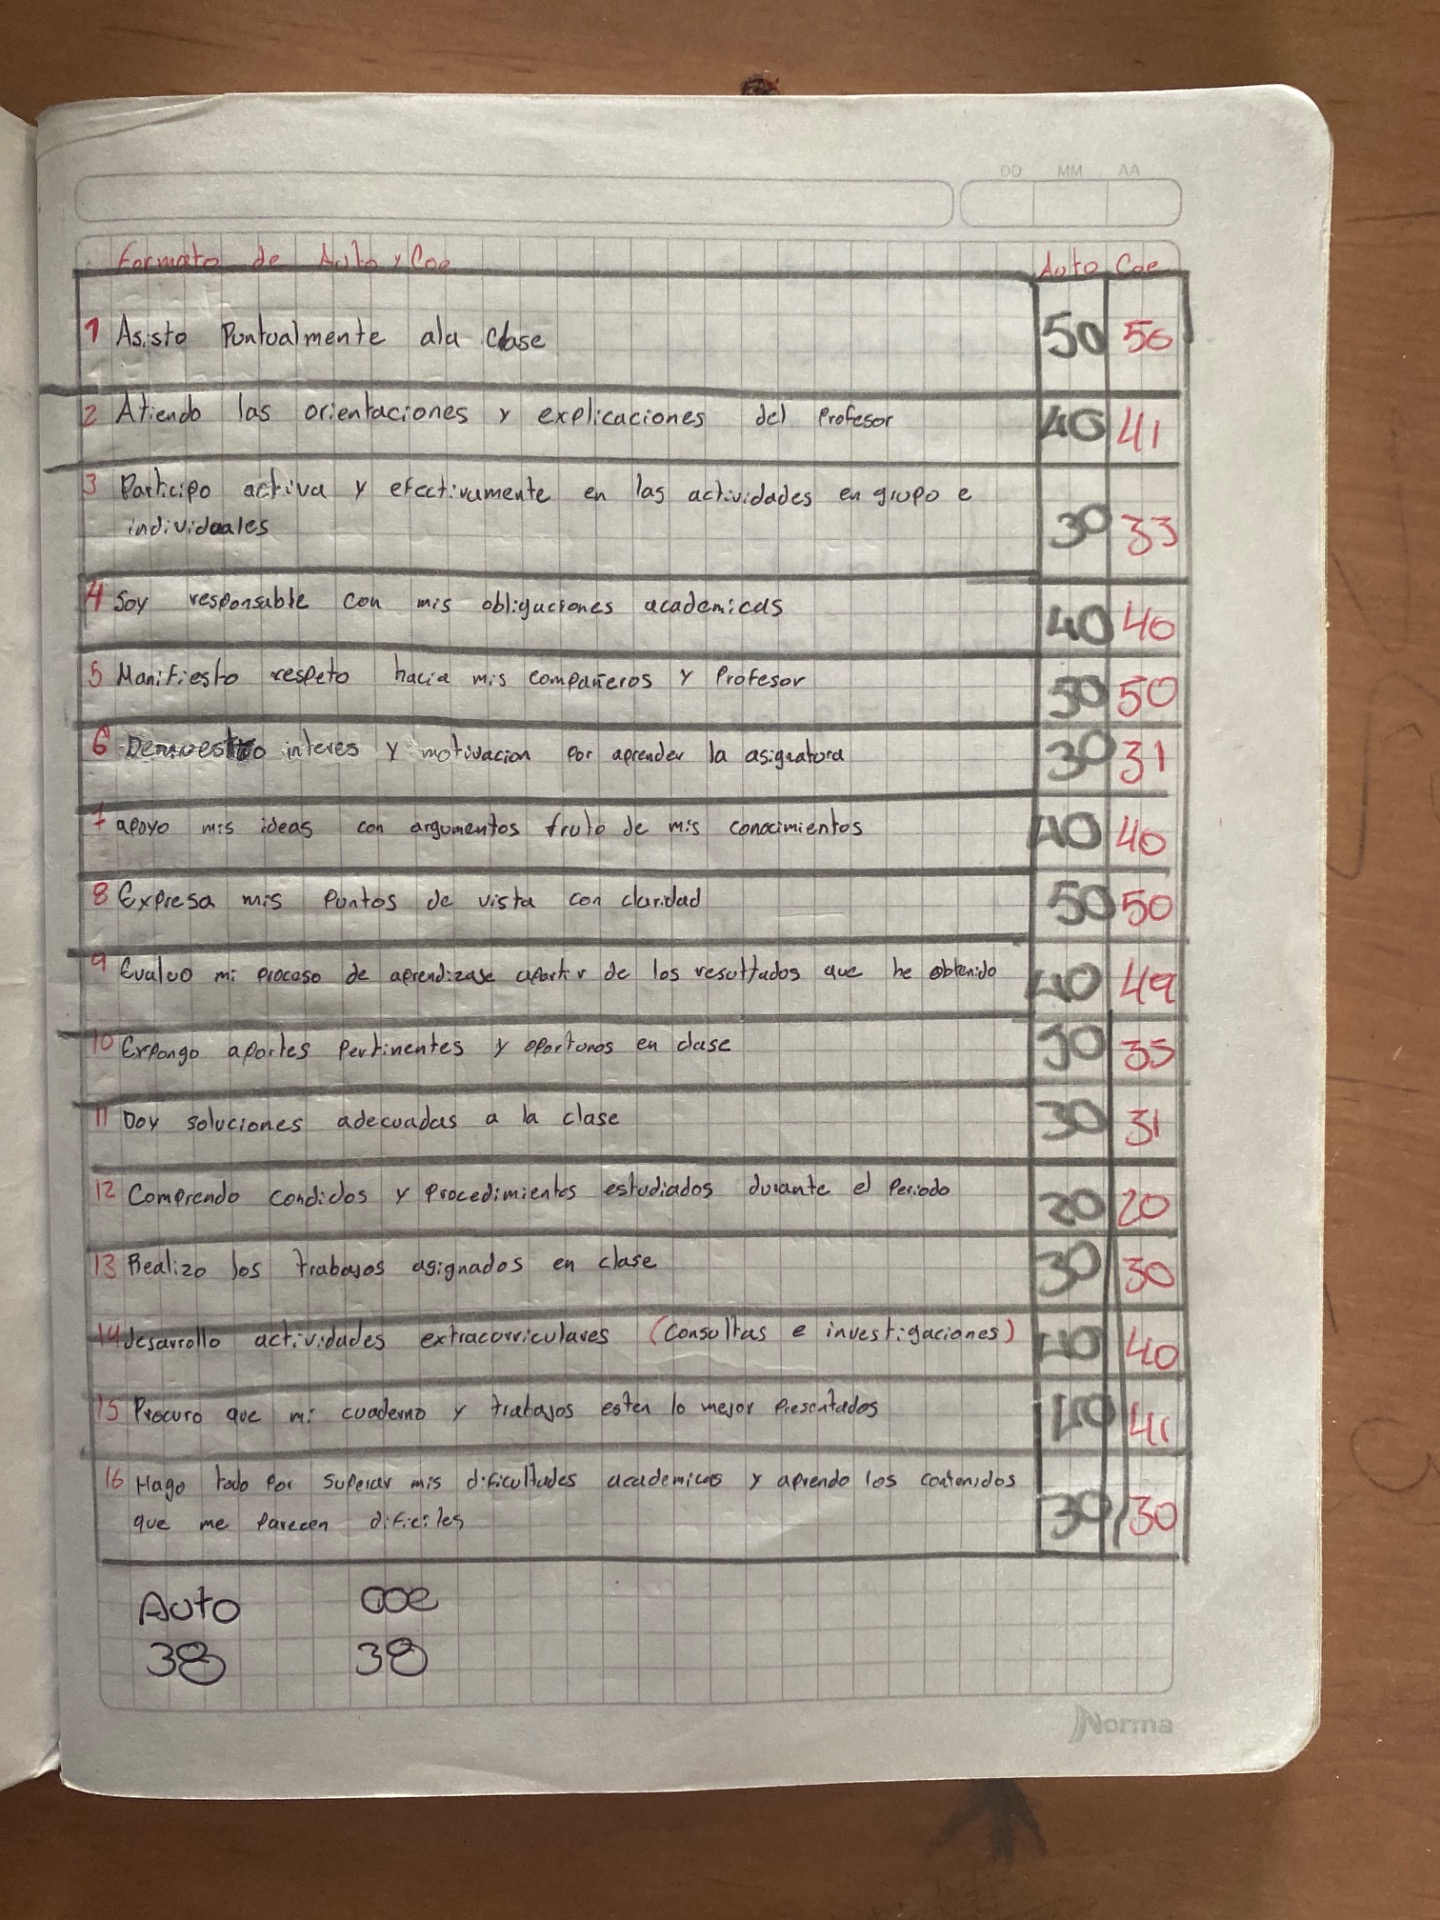 DD MM AA
Formato de Auto y Coe Auto Coe
1 Asisto Puntualmente ala Clase 50 50
2 Atiendo las orientaciones y explicaciones del Profesor 40 41
3 Participo activa y efectivamente en las actividades en grupo e
individuales 30 33
4 Soy responsable con mis obligaciones academicas 40 40
5 Manifiesto respeto hacia mis compañeros y Profesor 50 50
6 Demuestro interes y motivacion por aprender la asignatura 30 31
7 apoyo mis ideas con argumentos fruto de mis conocimientos 40 40
8 Expresa mis Puntos de vista con claridad 50 50
9 Evaluo mi proceso de aprendizase apartir de los resultados que he obtenido 40 49
10 Expongo aportes Pertinentes y oportunos en clase 30 35
11 Doy soluciones adecuadas a la clase 30 31
12 Comprendo condidos y Procedimientos estudiados durante el Periodo 20 20
13 Realizo los trabajos asignados en clase 30 30
14 desarrollo actividades extracurriculares (Consultas e investigaciones) 40 40
15 Procuro que mi cuaderno y trabajos esten lo mejor Presentados 40 41
16 Hago todo Por superar mis dificultades academicas y aprendo los contenidos
que me Parecen dificiles 30 30
Auto Coe
38 38
Norma